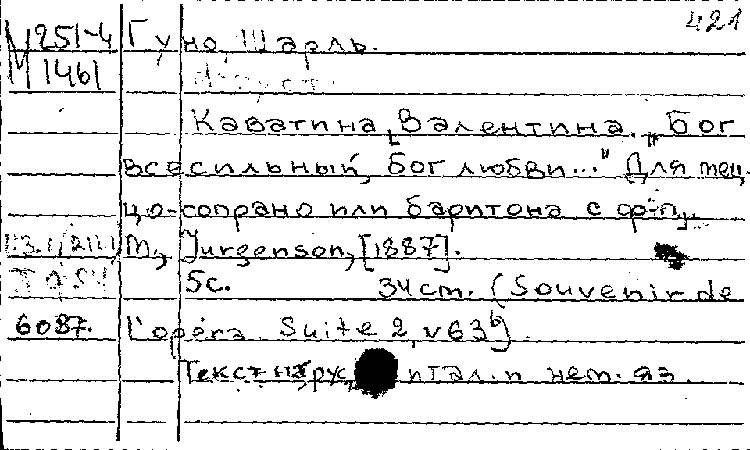 421
М251-4 Гуно, Шарль.
М1461 Фауст.
Каватина Валентина. „Бог
всесильный, бог любви..." Для мец-
цо-сопрано или баритона с ф-п.
М., Jurgenson, [1887].
5с. 34cm. (Souvenir de
6087. l'opéra. Suite 2, v63)
Текст на рус, итал. и нем. яз.